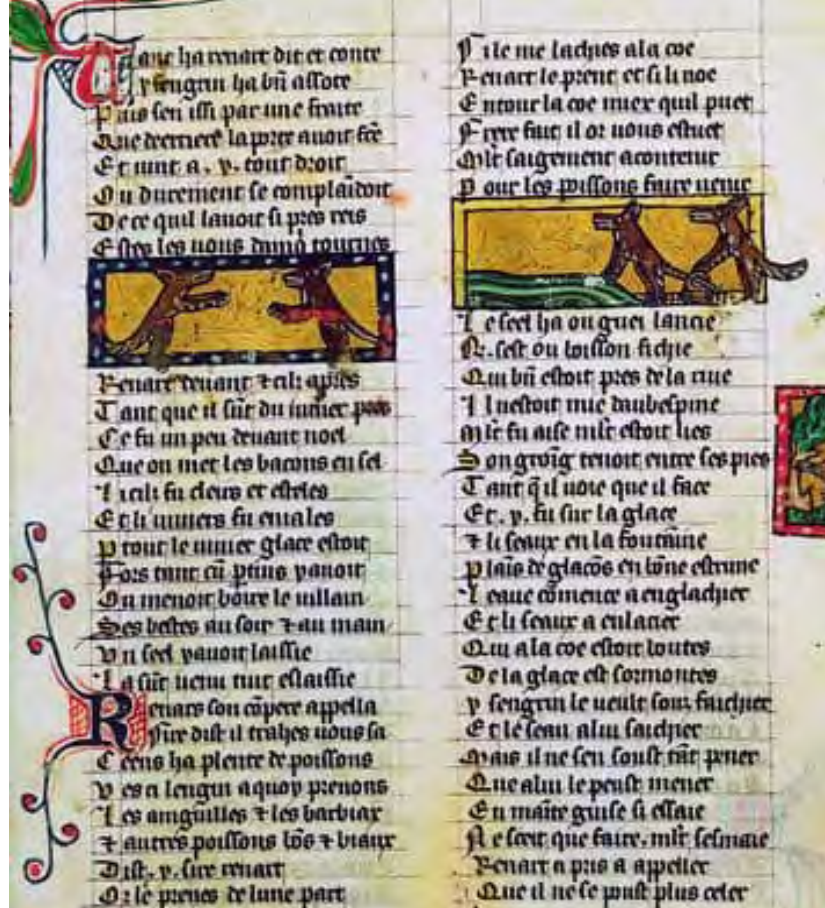 ant ha renart dit et conte
ysengrin ha bñ assote
Puis sen issi par une fraite
Que derriere la porte auoit fte
Et uint a . y . tout droit
Ou durement se complaidoit
De ce quil lauoit si pres res
Estes les uous dam̄ tournes
Renart deuant ⁊ cilz apres
Tant que il sūt du uiuier pres
Ce fu un peu deuant noel
Que on met les bacons en sel
Li cilz fu clers et esteles
Et li uiuiers fu
tout le uiuier glace estoit
Fors tant cū ptius yauoit
On menoit boire le uillain
Ses bestes au soir ⁊ au main
Vn seel yauoit laissie
La sūt uenu tuit eslaissie
Renars son cōpere appella
Sire dist il trahes uous sa
Ceens ha plente de poissons
Ves a lengin a quoy prenons
Les amguilles ⁊ les barbiax
⁊ autres poissons bōs ⁊ biaux
Dist . y . sire renart
Or le prenes de lune part
Si le me lachies a la coe
Renart le prent et si li noe
Entour la coe miex quil puet
Frere fait il or uous estuet
Mlt saigement a contenir
Pour les poissons faire uenir
Le seel ha ou guei lancie
R . sest ou buisson fichie
Qui bñ estoit pres de la riue
Il nestoit mie daubespine
Mlt fu aise mlt estoit lies
Son groīg tenoit entre ses pies
Tant q̄ il uoie que il face
Et . y . fu sur la glace
⁊ li seaux en la fontaine
Plaīs de glacōs en bōne estrune
Leaue cōmence a englachier
Et li seaux a enlacier
Qui a la coe estoit
De la glace est sormontes
ysengrin le ueult souz faichier
Et le seau a lui sachier
Mais il ne sen soust tāt pener
Que a lui le peust mener
En maīte guise si essaie
Ne scet que faire . mlt sesmaie
Renart a pris a appeller
Que il ne se puist plus celer